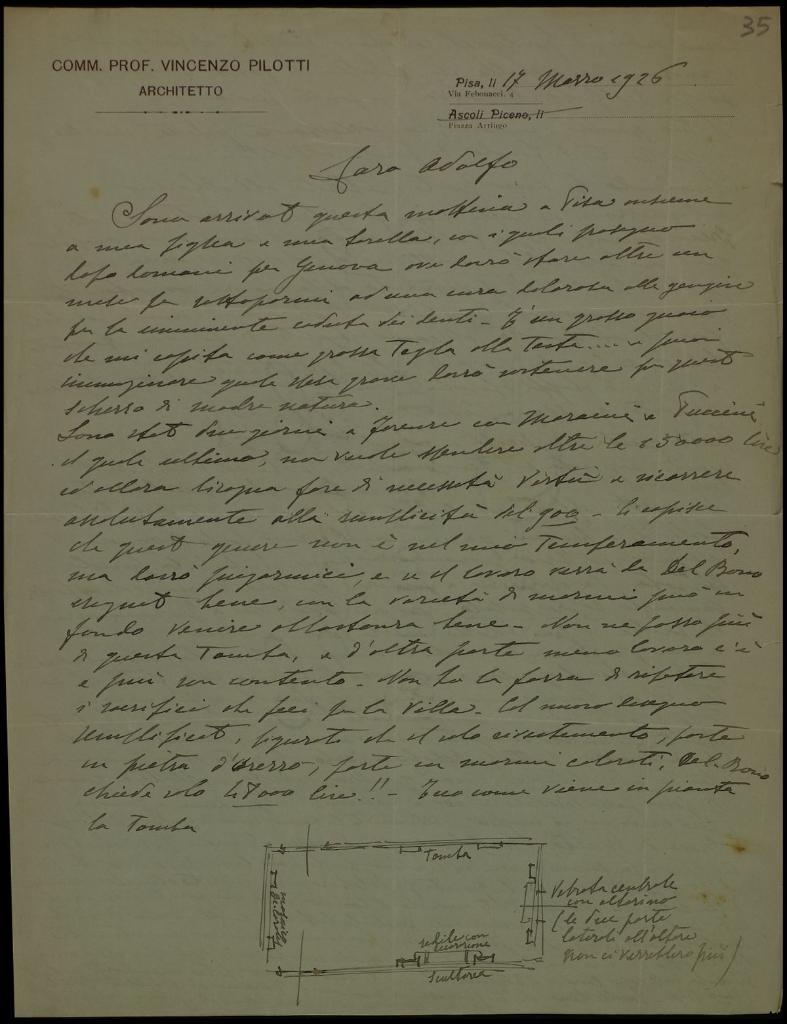 35
COMM. PROF. VINCENZO PILOTTI
ARCHITETTO
Pisa, li 17 Marzo 1926
Via Febonacci, 4
Ascoli Piceno, li
Piazza Arringo
Caro Adolfo
Sono arrivato questa mattina a Pisa insieme
a mia figlia e mia sorella, con i quali proseguo
dopo domani per Genova ove dovrò stare oltre un
mese per sottopormi ad una cura dolorosa alle gengive
per la imminente caduta dei denti - È un grosso guaio
che mi capita come grossa tegola alla testa.... e puoi
immaginare quale spesa grave dovrò sostenere per questo
scherzo di madre natura.
Sono stato due giorni a Firenze con Maraini e Puccini
il quale ultimo, non vuole spendere oltre le 150000 lire
ed allora bisogna fare di necessità virtù e ricorrere
assolutamente alla semplicità del 900 - Si capisce
che questo genere non è nel mio temperamento,
ma dovrò piegarmici, e se il lavoro verrà da Del Bono
eseguito bene, con la varietà di marmi può in
fondo venire abbastanza bene - Non ne posso più
di questa Tomba, e d'altra parte meno lavoro c'è
e più son contento - Non ho la forza di ripetere
i sacrifici che feci per la Villa - Col nuovo disegno
semplificato, figurati che il solo rivestimento, parte
in pietra d'Arezzo, parte in marmi colorati, Del-Bono
chiede solo 48000 lire!! - Ecco come viene in pianta
la Tomba
Tomba
sedile con
Scultorea
Vetrata centrale
con altarino
(le due porte
laterali all'altare
non ci verrebbero più)